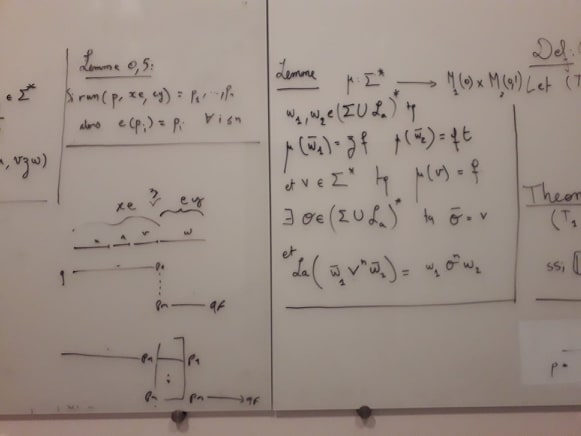 ∈ Σ*
, vzw)
Lemme 0,5:
Si run(p, xe, ey) = p₁, ..., pₙ
alors e(pᵢ) = pᵢ ∀ i ≤ n
xe ey
u v w
q p₀
pₙ qf
pₙ pₙ
pₙ pₙ → qf
Lemme μ: Σ*
w₁, w₂ ∈ (Σ ∪ 𝓛ₐ)* tq
μ(w̄₁) = z f μ(w̄₂) = f t
et v ∈ Σ* tq μ(v) = f
∃ σ ∈ (Σ ∪ 𝓛ₐ)* tq σ̄ = v
et
𝓛ₐ(w̄₁ vⁿ w̄₂) = w₁ σⁿ w₂
Def:
Let (T
Theor
(T₁
ssi
p